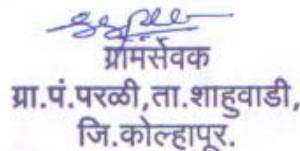 ग्रामसेवक
ग्रा.पं.परळी,ता.शाहुवाडी,
जि.कोल्हापूर.